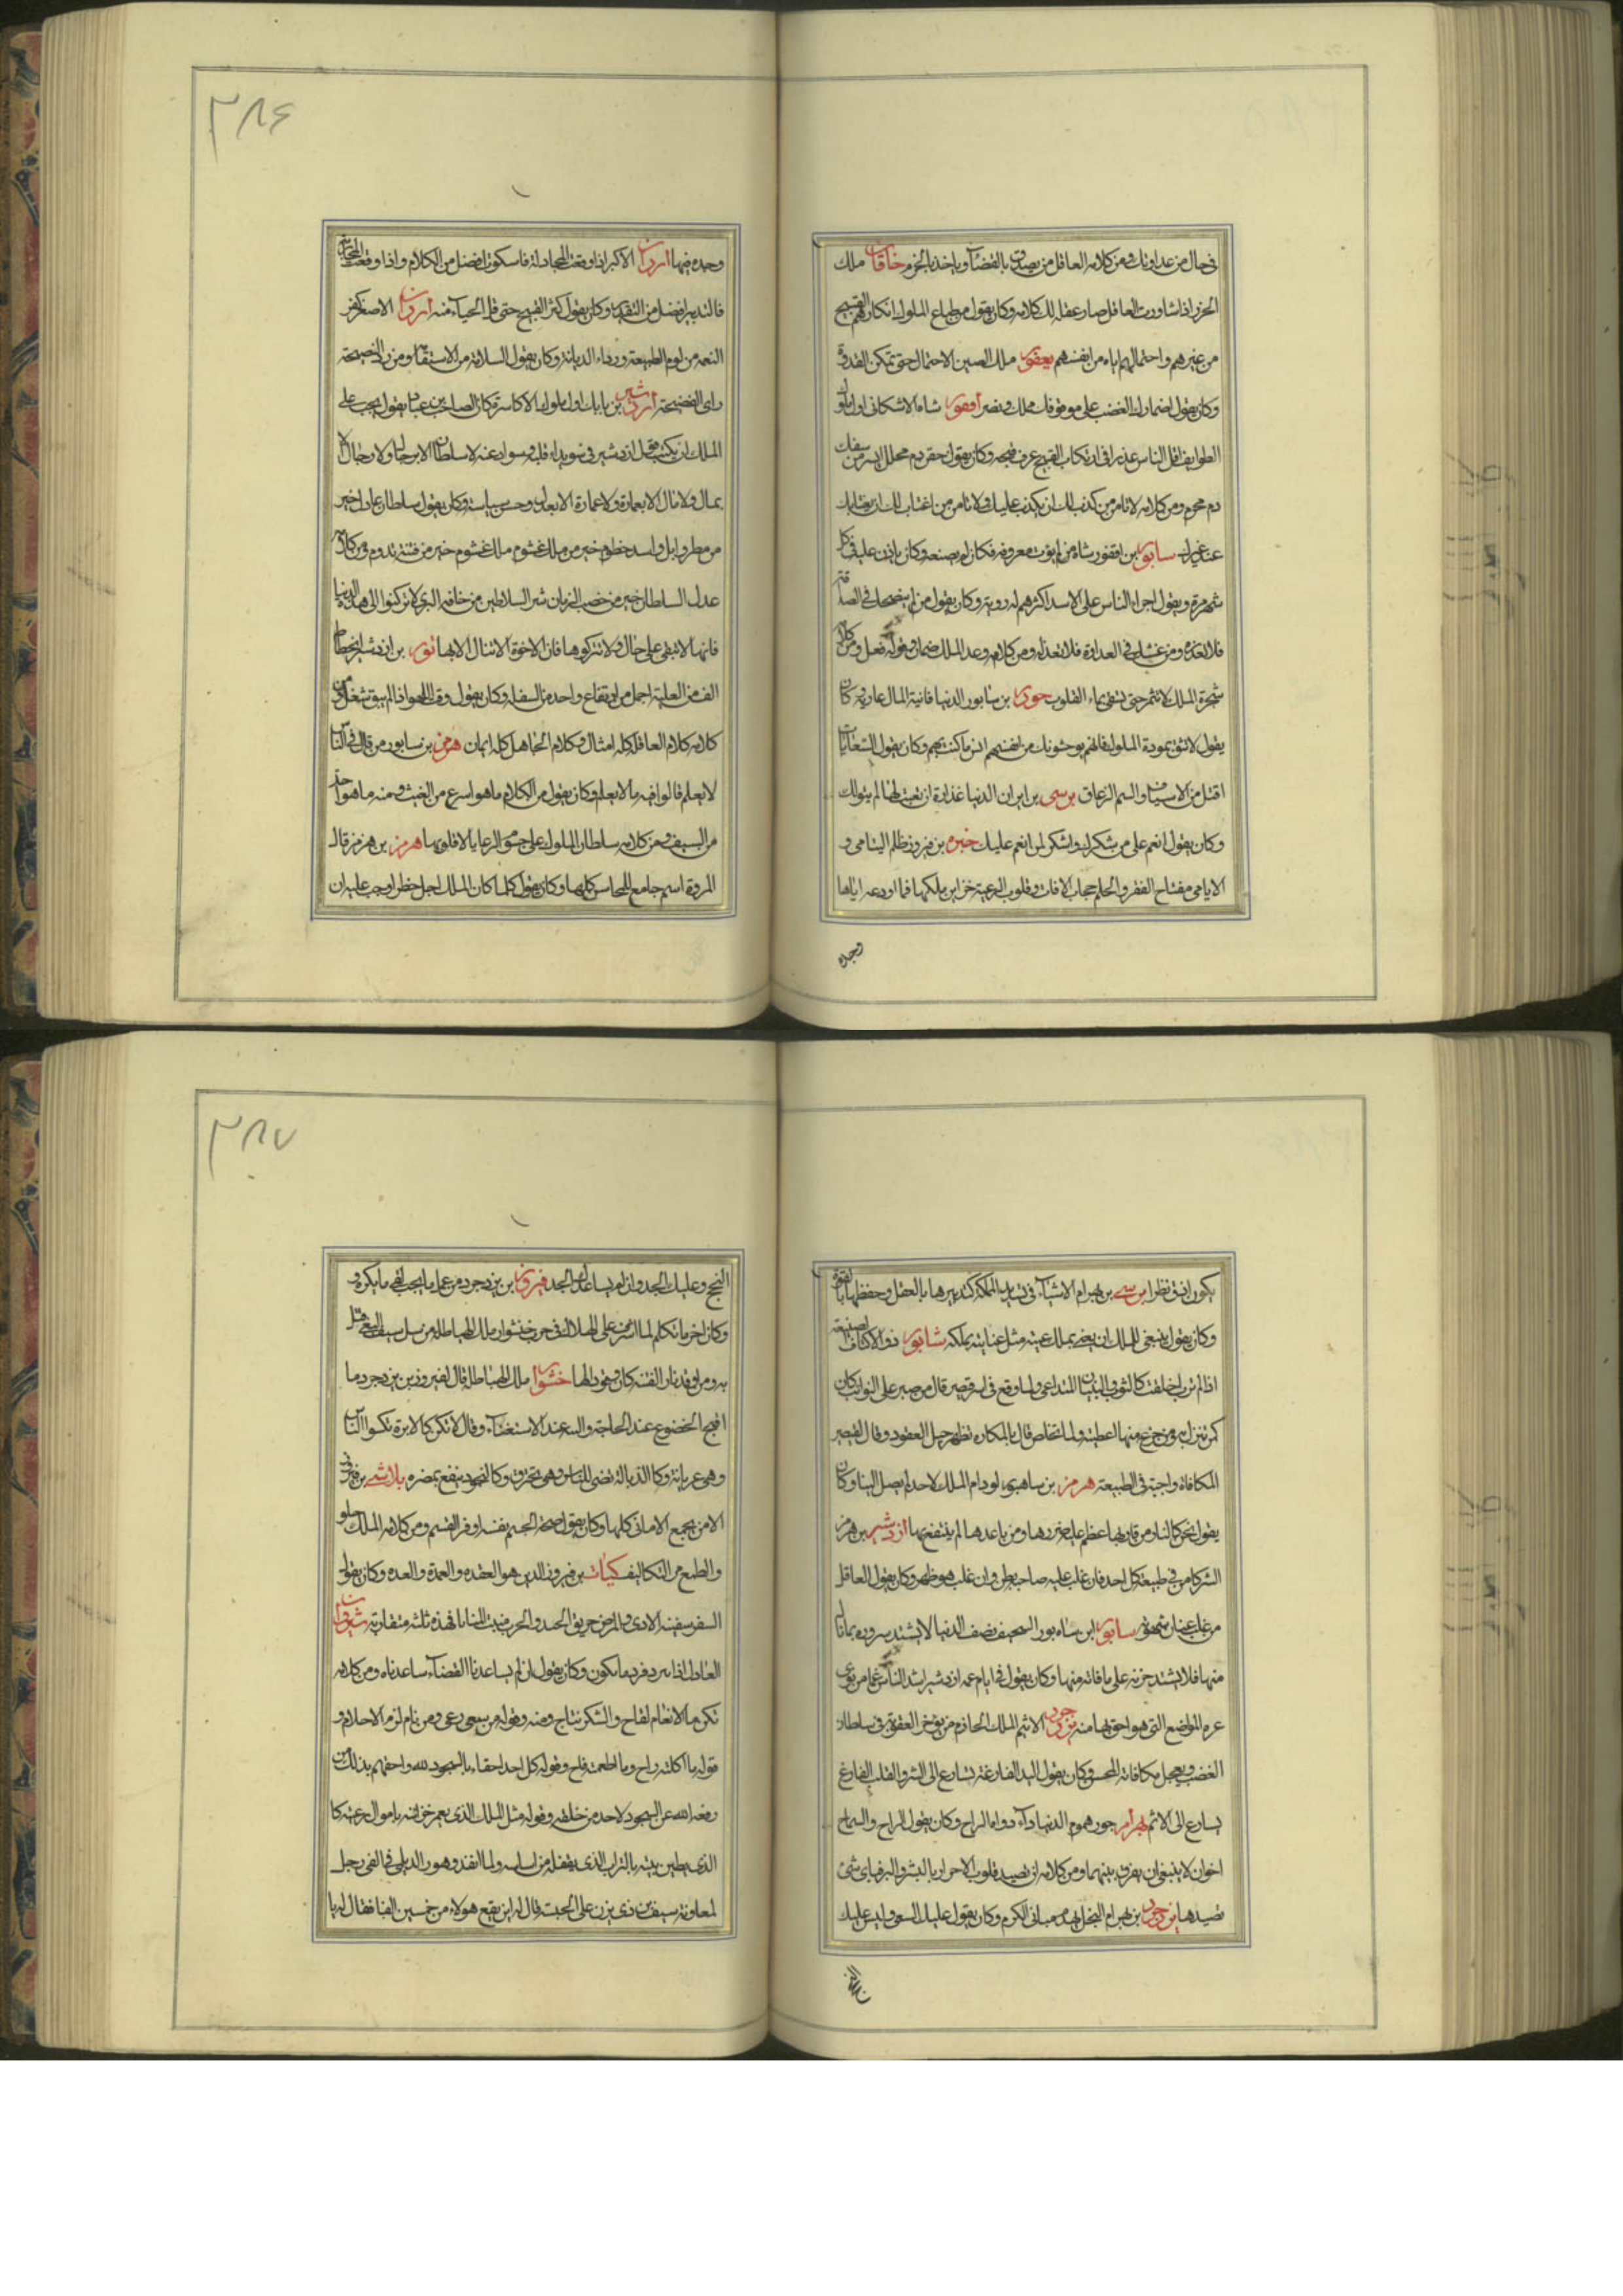 فی حال من عداوتك ومن كلامه العاقل من يصدق بالقضاء ويأخذ بالحزم خاقان ملك
الخزر اذا شاورت العاقل صار عقله لك كلامه وكان يقول من طباع الملوك انكارهم القبيح
من غيرهم واحتمالهم اياه من انفسهم يعفور ملك الصين الاحتمال حتى تمكن القدرة
وكان يقول الغضب على من فوقك افقور شاه الاشكانى اول ملوك
الطوايف اقل الناس عذرا فى ارتكاب القبيح من عرف قبحه وكان يقول حقن دم محلل ايسر من سفك
دم محرم ومن كلامه لا تامن من كذب لك ان يكذب عليك ولا تامن من اغتاب لك ان يغتابك
عند غيرك سابور بن افقور شاه من لم يؤت معروفه فكان لم يصنعه وكان ياذن عليه فى كل
شهر مرة ويقول اجراء الناس على الاسد اكثرهم له روية وكان يقول من لم ينصحك فى الصداقة
فلا تعذره ومن غشك فى العداوة فلا تعذله ومن كلامه وعد الملك ضمان وقوله فعل ومن كلامه
شجرة الملك لا تثمر حتى تسقى بماء القلوب جودرز بن سابور الدنيا فانية المال عارية كان
يقول لا تثق بمودة الملوك فانهم يوحشونك من انفسهم انس ما كنت بهم وكان يقول السعايات
اقتل من الاسياف والسم الزعاق نرسى بن ايران الدنيا غدارة ان بقيت لها لم تبق لك
وكان يقول انعم على من شكرك واشكر لمن انعم عليك بن فيروز ظلم اليتامى و
الايامى مفتاح الفقر والحلم حجاب الافات وقلوب الرعية خزاين ملكها فما اودعه اياها
وجده
٣٨۶
وجده فيها اردوان الاكبر اذا وقعت المجادلة فالسكوت افضل من الكلام واذا وقعت المحاربة
فالتدبير افضل من التقدير وكان يقول كثر القبيح حتى قل الحياء منه اردوان الاصغر كفر
النعمه من لوم الطبيعة ورداءة الديانة وكان يقول السلامة من الاستقامة ومن رد النصيحة
راى الفضيحة اردشير بن بابك اول ملوك الاكاسرة كان الصاحب بن عباد يقول يجب على
الملك ان يكتب قول اردشير فى سويداء قلبه وسواد عينه لا سلطان الا برجال ولا رجال الا
بمال ولا مال الا بعمارة ولا عمارة الا بعدل وحسن سياسة وكان يقول سلطان عادل خير
من مطر وابل واسد حطوم خير من ملك غشوم ملك غشوم خير من فتنة تدوم ومن كلامه
عدل السلطان خير من خصب الزمان شر السلاطين من خافه البرى لا تركنوا الى هذه الدنيا
فانها لا تبقى على حال ولا تتركوها فان الاخرة لا تنال الا بها بن اردشير انحطاط
الف من العلية اجمل من ارتفاع واحد من السفلة وكان يقول وقت اللهو اذا لم يبق شغل ومن
كلامه كلام العاقل كله امثال وكلام الجاهل كله ايمان هرمز بن سابور من قال فى الناس
لا يعلم قالوا فيه ما لا يعلم وكان يقول من الكلام ما هو اسرع من الغيث ومنه ما هو احد
من السيف ومن كلامه سلطان الملوك على جسوم الرعايا لا قلوبها هرمز بن هرمز قال
المروة اسم جامع للمحاسن كلها وكان يقول كلما كان الملك اجل خطرا وجب عليه ان
يكون ادق نظرا نرسى بن بهرام الاشياء فى تدبير المملكة تدبيرها بالعقل وحفظها بالقوة
وكان يقول ينبغى للملك ان يعنى بملك عينه مثل عنايته بملكه شابور ذو الاكتاف الصنيعة
اذا لم ترب اخلقت كالثوب البنيان المتداعى ولما وقع فى اسر قيصر قال من صبر على النوايب كان
كمن تنزل به ومن جزع منها اعطيت ولما تخلص قال بالمكاره تظهر حيل العقول وقال لقيصر
المكافاة واجبة فى الطبيعة هرمز بن سابور لو دام الملك لاحد لم يصل الينا وكان
يقول نحن كالنار من قاربها عظم عليه ضررها ومن باعدها لم ينتفع بها اردشير بن هرمز
الشر كامن فى طبيعة كل احد فان غلب عليه صاحبه بطن وان غلب هو ظهر وكان يقول العاقل
من غلب عنان شهوته سابور ابن شاه بور السخيف نصف الدنيا لا يشتد سروره بما نال
منها فلا يشتد حزنه على ما فاته منها وكان يقول فى ايام عمه اردشير اشد الناس غما من يرى
غيره المواضع التى هو احق بها منه يزدجرد الاثيم الملك الحازم من يؤخر العقوبة فى سلطان
الغضب ويعجل مكافاة المحسن وكان يقول اليد الفارغة تسارع الى الشر والقلب الفارغ
يسارع الى الاثم بهرام جور هموم الدنيا داء دواها الراح وكان يقول الراح والسماح
اخوان لا ينبغى ان يفرق بينهما ومن كلامه ان تصيد قلوب الاحرار بالبشر والبر فباى شئ
تصيدها يزدجرد بن بهرام البخل يهدم مبانى الكرم وكان يقول عليك السعى وليس عليك
النجح
٣٨٧
النجح وعليك الجد وان لم يساعدك الجد فيروز بن يزدجرد من عمل ما يجب لقى ما يكره
وكان اخر ما تكلم لما اشرف على الهلاك فى حرب خشنواز ملك الهياطلة من سل سيف البغى قتل
به ومن اوقد نار الفتنة كان وقودا لها خشنواز ملك الهياطلة قال لفيروز بن يزدجرد ما
اقبح الخضوع عند الحاجة والتيه عند الاستغناء وقال لا تكن كالابرة تكسوا الناس
وهى عريانة وكالذبالة تضىء للناس وهى تحترق وكالعود ينفع بمضره بلاش بن فيروز
الامن يجمع الامانى كلها وكان يقول صحة الجسم نفسه اوفر القسم ومن كلامه الملك حلو
والطبع من التكاليف بن فيروز الدين هو العقده والعمدة والعده وكان يقول
السفر سفينة الاذى والمرض حريق الجسد والحرب منبت المنايا فهذه ثلثه متقاربة نوشيروان
العادل اذا لم يرد فرد ما يكون وكان يقول ان لم يساعدنا القضاء ساعدناه ومن كلامه
الانعام لقاح والشكر نتاج ومنه وقوله من سعى رعى ومن نام لزم الاحلام و
قوله ما اكلته راح وما اطعمته فاح وقوله كل احد احقاء بالسجود لله واحقهم بذلك من
رفعه الله عن السجود لاحد من خلقه وقوله مثل الملك الذى يعمر خزائنه باموال رعيته كا
الذى يطين بيته بالتراب الذى يقتلعه من اساسه ولما انفذ وهرز الديلمى فى الفى رجل
لمعاونة سيف بن ذى يزن على الحبشة قال له اين يقع هولاء من خمسين الفا فقال له يا